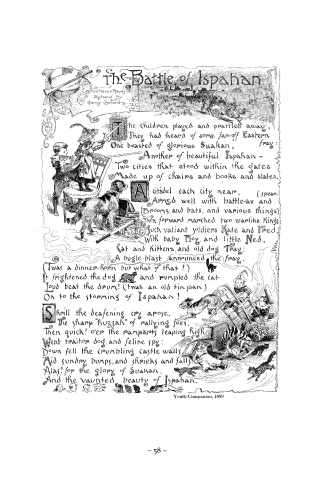 The Battle of Ispahan
The children played and prattled away;
They had heard of some far-off Eastern
fray;
One boasted of glorious Suakan,
Another of beautiful Ispahan –
Two cities that stood within the gates
Made up of chairs and books and slates.
Outside each city near,
(spear
Armed well with battle-ax and
Brooms, and bats, and various things)
forward marched two warlike Kings
Such valiant soldiers Kate and Fred,
With baby May, and little Ned,
Cat and kittens, and old dog Tray;
A bugle-blast announced the fray,
(Twas a dinner-horn but what of that!)
It frightened the dog and rumpled the cat
Loud beat the drum! ('twas an old tin pan)
On to the storming of Ispahan!
Shrill the deafening cry arose,
The sharp "huzzah" of rallying foes,
Then quick! o'er the ramparts leaping high
Went traitor dog, and feline spy;
Down fell the crumbling castle walls,
Mid sundry bumps, and shrieks and falls,
Alas! for the glory of Suakan,
And the vaunted beauty of Ispahan.
Youth Companion, 1889
– 58 –